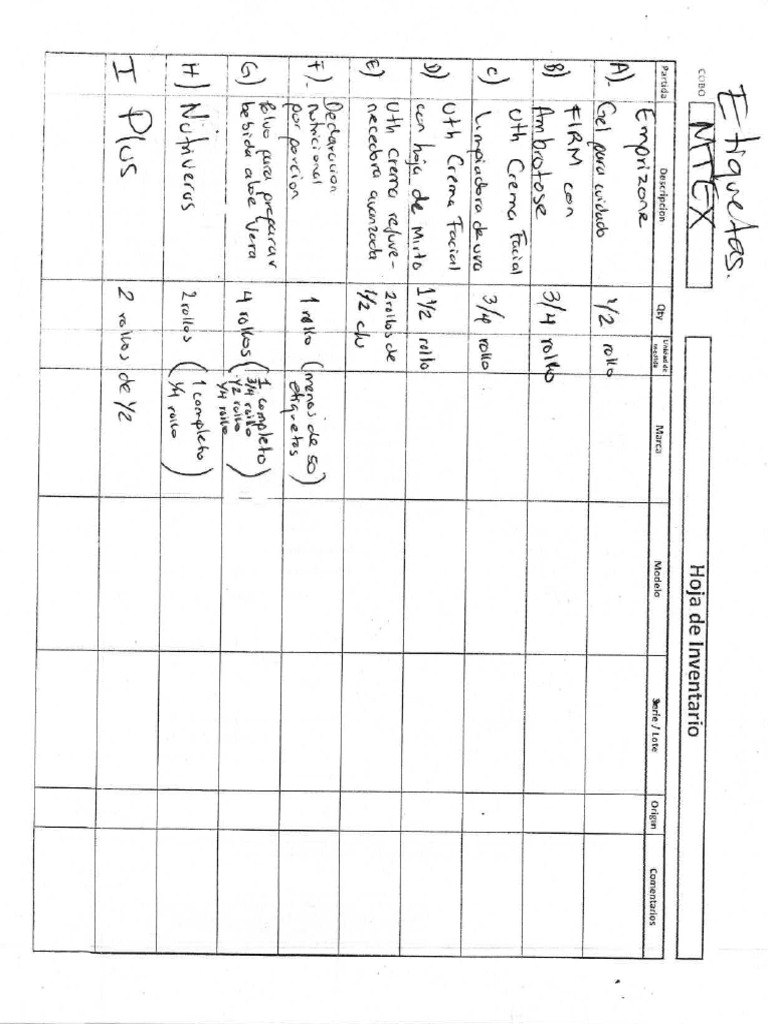 Etiquetas.
COBO
MTEX
Hoja de Inventario
Partida Descripcion Qty Unidad de medida Marca Modelo Serie / Lote Origen Comentarios
A). Emprizone 1/2 rollo
Gel para cuidado
B) FIRM con 3/4 rollo
Ambrotose
C) Uth Crema Facial 3/4 rollo
Limpiadora de uva
D) Uth Crema Facial 1 1/2 rollo
con hoja de Mirto
E) Uth Crema rejuve- 2 rollos de
necedora avanzada 1/2 c/u
F). Declaracion 1 rollo (menos de 50
nutricional etiquetas)
por porcion
G) Polvo para preparar 4 rollos (1 completo
bebida aloe vera 3/4 rollo
1/2 rollo
1/4 rollo)
H) Nutriverus 2 rollos (1 completo
1/4 rollo)
I Plus 2 rollos de 1/2